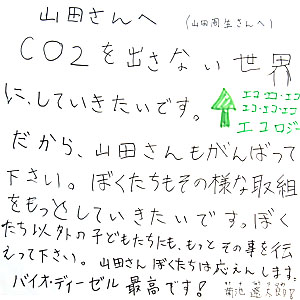 山田さんへ (山田周生さんへ)
CO2を出さない世界
に、していきたいです。
エコ・エコ・エコ
エコ・エコ・エコ
エコロジー
だから、山田さんもがんばって
下さい。ぼくたちもその様な取組
をもっとしていきたいです。ぼく
たち以外の子どもたちにも、もっとその事を伝
えって下さい。山田さんぼくたちは応えんします。
バイオ・ディーゼル 最高です!
菊池